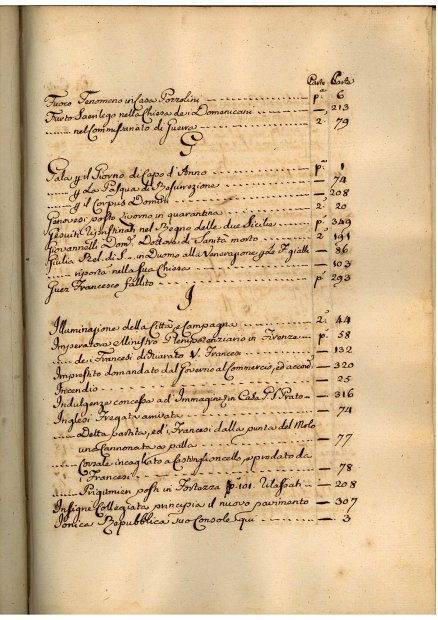 Parte Carte
Fuoco Fenomeno in Casa Pozzolini p.ª 6
Furto Sacrilego nella Chiesa de i Domenicani — 213
nel Commissariato di Guerra 2.ª 79
G
Gala p il Giorno di Capo d'Anno p.ª 1
p La Pasqua di Resurrezione — 74
p il Corpus Domini — 208
Genovesi posto Livorno in quarantina 2.ª 20
Gesuiti Ripristinati nel Regno delle due Sicilie p.ª 349
Giovannelli Dom.º Dottore di Sanità morto 2.ª 191
Giulia Rel. di S.ª in Duomo alla Venerazione — 86
riporta nella sua Chiesa — 103
Guer Francesco fallito p.ª 293
I
Illuminazione della Città, e Campagna 2.ª 44
Imperatova Ministro Plenipotenziario in Firenze p.ª 58
de i Francesi — 132
Imprestito domandato dal Governo al Commercio, ed accord. — 320
Incendio — 25
Indulgenze concesse ad Immagine in Casa Prato — 316
Inglesi Fregata arrivata — 74
Detta partita, ed i Francesi dalla punta del Molo
una Cannonata a palla — 77
Corsale incagliato a Castiglioncello, e predato da
i Francesi — 78
Prigionieri posti in Fortezza p.ª 101. Rilassati — 208
Insigne Collegiata principia il nuovo pavimento — 307
Ionica Repubblica suo Console qui — 3